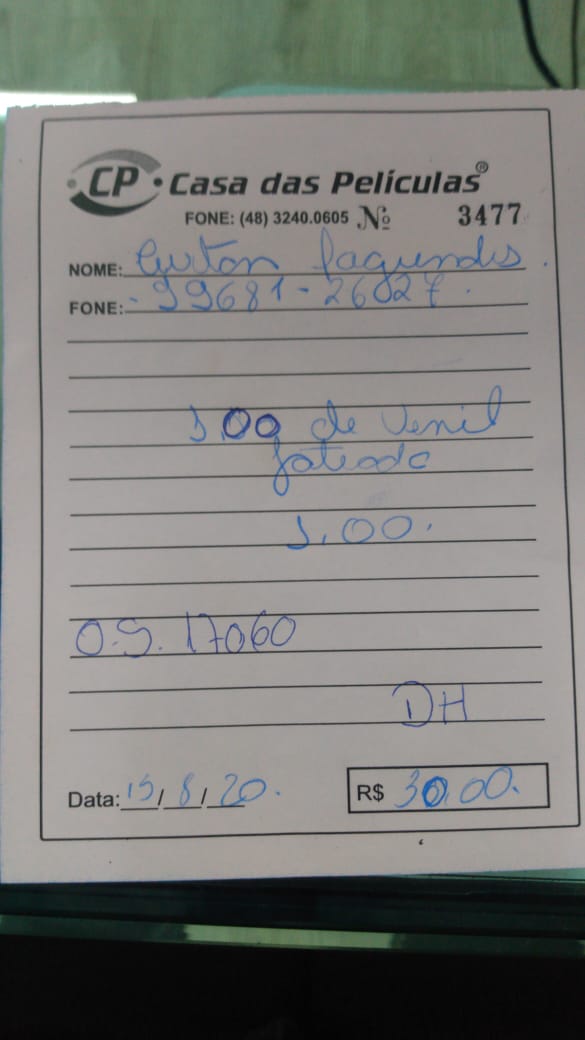 CP • Casa das Películas®
FONE: (48) 3240.0605 Nº 3477
NOME: Gerton Fagundes.
FONE: 99681-26827.
1,00 de Venil
Jateado
1,00.
O.S. 17060
DH
Data: 15/8/20. R$ 30,00.